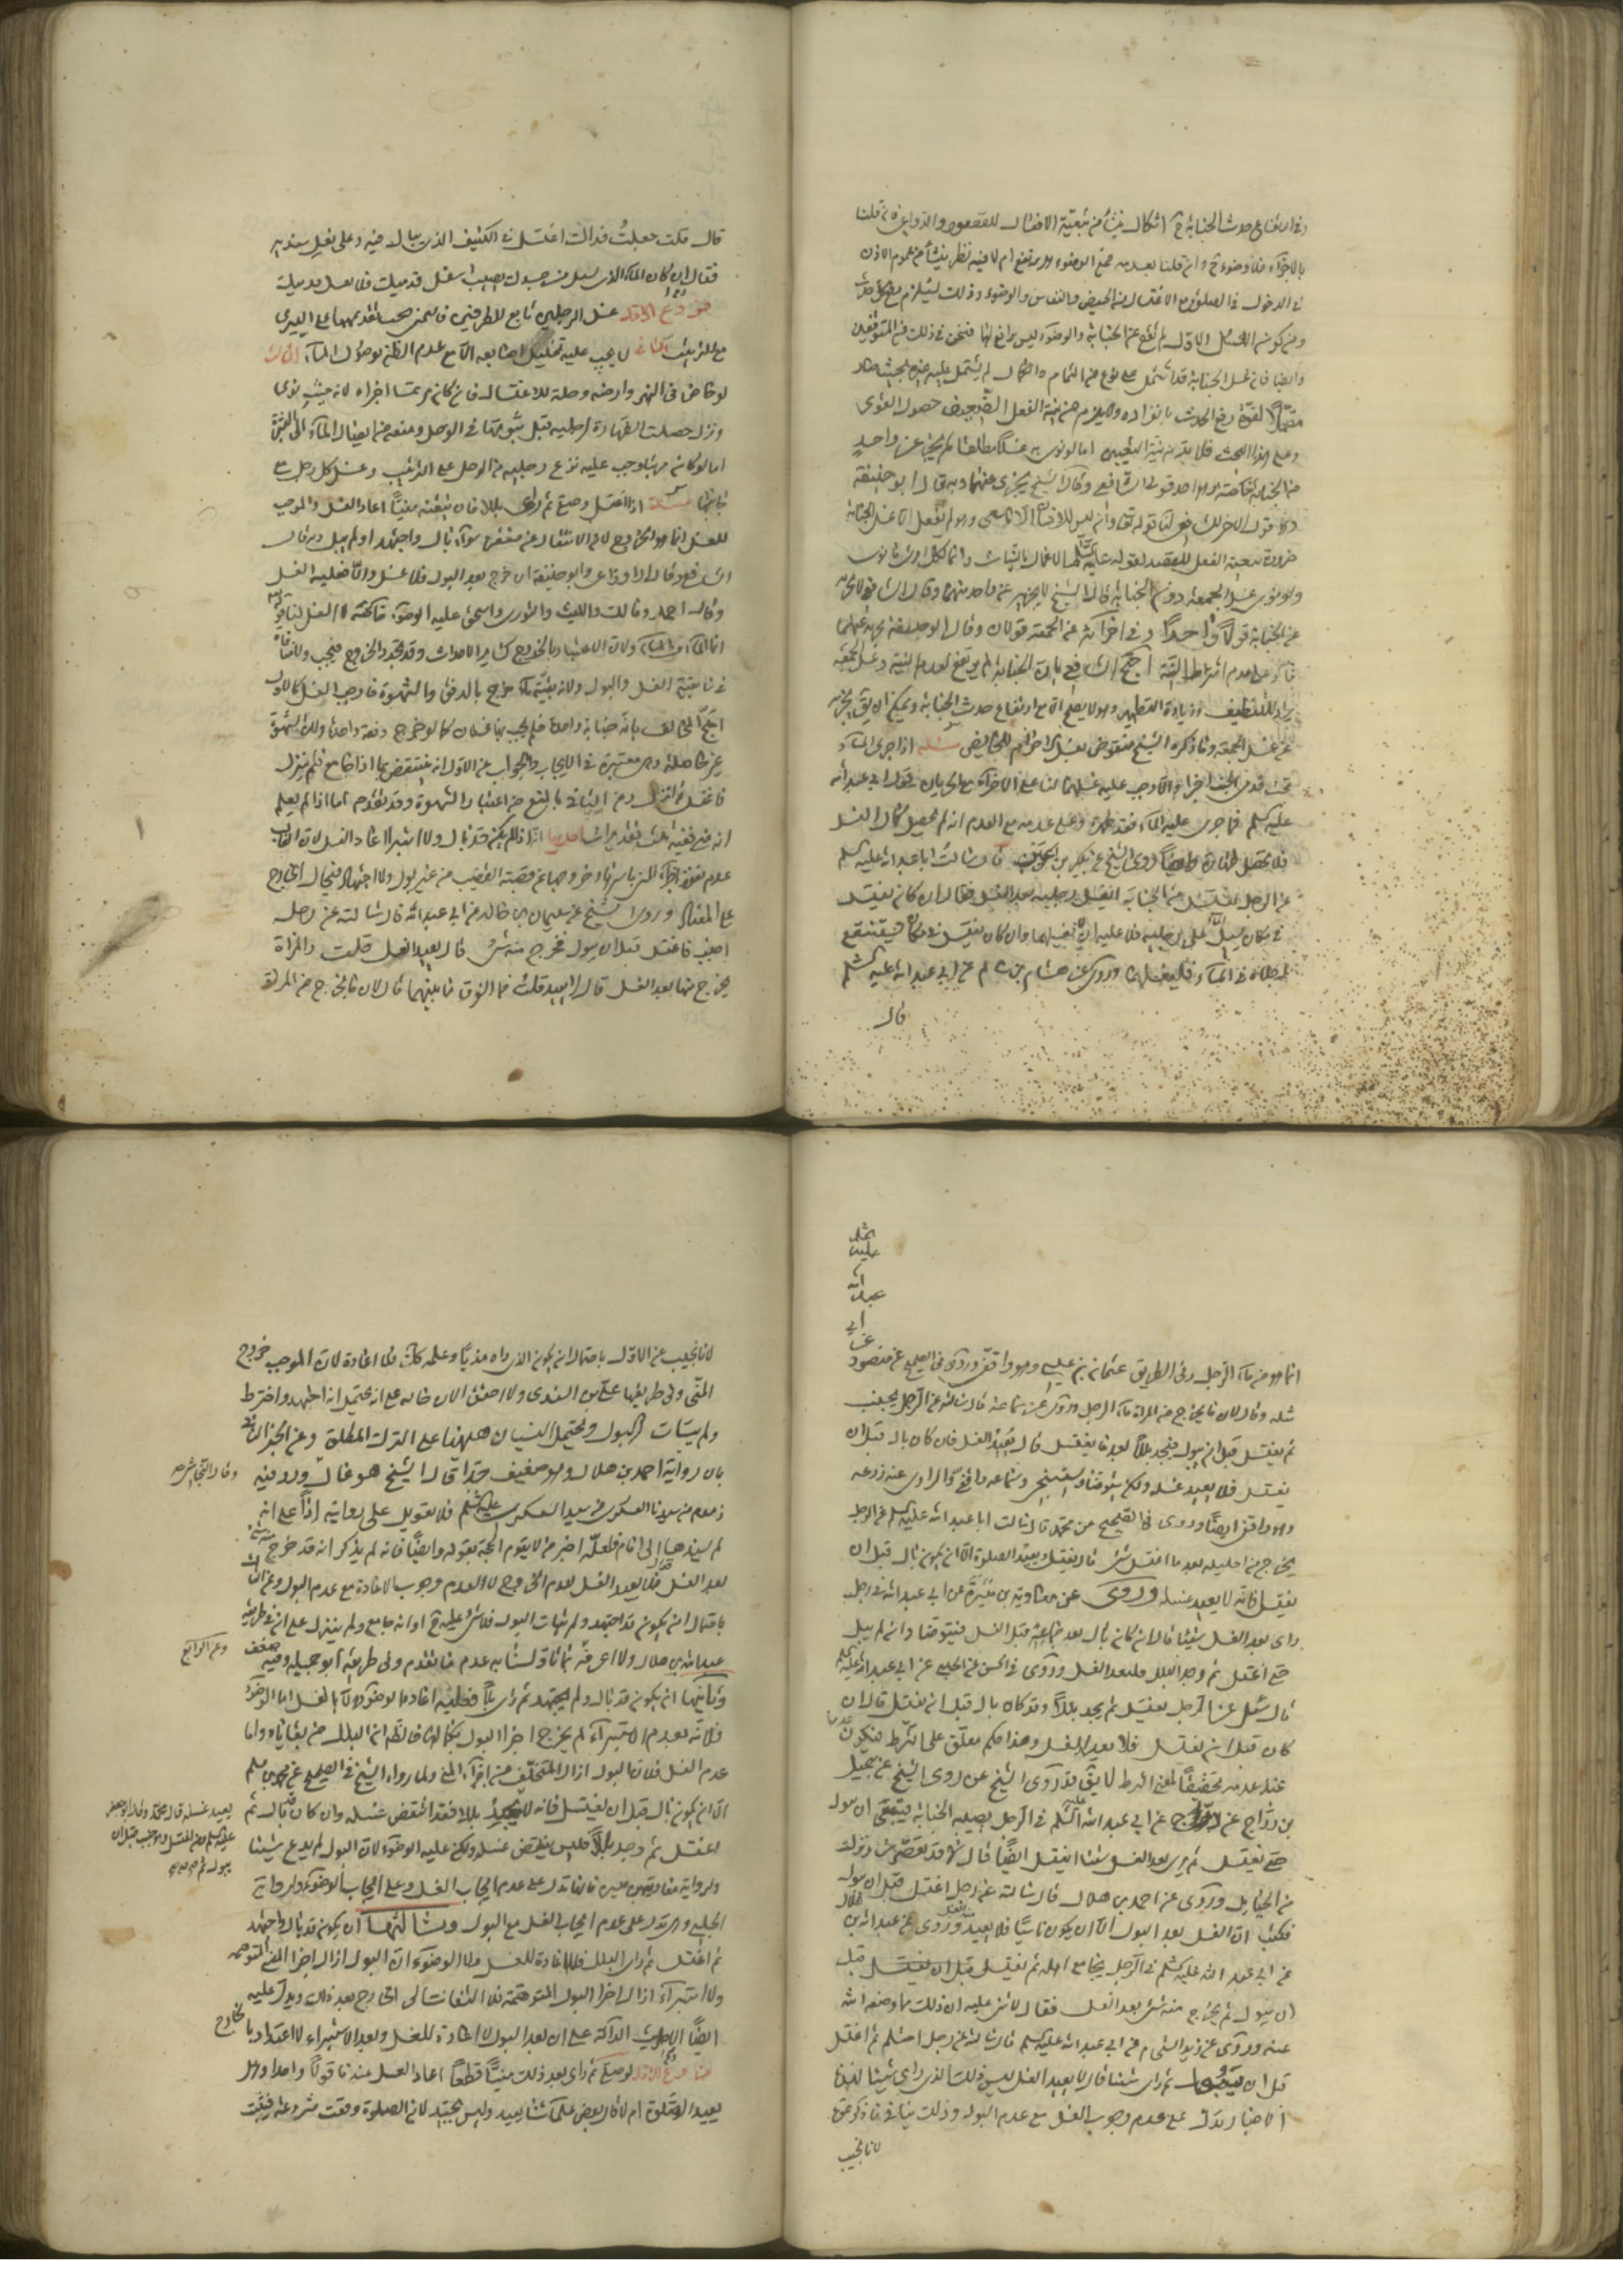 وفي ارتفاع حدث الجنابة ح اشكال ينشأ من تبعية الافعال للقصود والدواعي فان قلنا
بالاجزاء فلا وضوء ح وان قلنا بعدمه فمع الوضوء هل يرتفع ام لا فيه نظر ينشأ من عموم الاذن
في الدخول في الصلوة مع الاغتسال من الحيض والنفاس والوضوء وذلك يستلزم
ومن كون الغسل الاول لم يقع عن الجنابة والوضوء ليس برافع لها فنحن في ذلك من المتوقفين
وايضا فان غسل الجنابة قد اشتمل على نوع من التمام والكمال لم يشتمل عليه غيره بحيث صار
لقوة رفع الحدث بانفراده ولا يلزم من نية الفعل الضعيف حصول القوي
وعلى هذا البحث فلا بد من نية التعيين اما لو نوى غسلا مطلقا لم يجز عن واحد
من الجنابة خاصة وهو احد قولي الشافعي وقال الشيخ يجزي عنهما وبه قال ابو حنيفة
لنا قوله تعالى وان ليس للانسان الا ما سعى وهو لم يفعل غسل الجنابة
ضرورة تبعية الفعل للقصد لقوله عليه السلم انما الاعمال بالنيات وانما لكل امرئ ما نوى
ولو نوى غسل الجمعة دون الجنابة قال الشيخ لا يجزيه عن واحد منهما وقال الشافعي لا يجزيه
عن الجنابة قولا واحدا وفي اجزائه عن الجمعة قولان وقال ابو حنيفة يجزيه عنهما
بناء على عدم اشتراط النية احتج الشافعي بان الجنابة لم يرتفع لعدم النية وغسل الجمعة
يراد للتنظيف وزيادة التطهير وهو لا يصح الا مع ارتفاع حدث الجنابة ويمكن ان يق يجزيه
عن غسل الجمعة وما ذكره الشيخ منقوض بغسل الاحرام للحائض مسئلة اذا جرى الماء
تحت قدمي الجنب اجزاه والا وجب عليه غسلهما لنا على الاجزاء مع الجريان قول ابي عبد الله
عليه السلم فما جرى عليه الماء فقد طهره وعلى عدمه مع العدم انه لم يحصل كمال الغسل
فلا يحصل الطهارة وايضا روى الشيخ عن بكر بن كرب قال سألت ابا عبد الله عليه السلم
عن الرجل يغتسل من الجنابة ايغسل رجليه بعد الغسل فقال ان كان يغتسل
في مكان يسيل الماء على رجليه فلا عليه ان لا يغسلهما وان كان يغتسل في مكان يستنقع
رجلاه في الماء فليغسلهما وروى عن هشام بن سالم عن ابي عبد الله عليه السلم
قال
قال قلت جعلت فداك اغتسل في الكنيف الذي يبال فيه وعلي نعل سندية
فقال ان كان الماء الذي يسيل من جسدك يصيب اسفل قدميك فلا تغسل قدميك
فروع الاول غسل الرجلين تابع للطرفين فاليمنى يجب تقديمها على اليسرى
مع الترتيب الثاني لا يجب عليه تخليل اصابعه الا مع عدم الظن بوصول الماء الثالث
لو خاض في النهر وارضه وحلة للاغتسال فان كان مرتمسا اجزاه لانه حيث نوى
ونزل حصلت الطهارة لرجليه قبل ثبوتهما في الوحل ومنعه من ايصال الماء الى البشرة
اما لو كان مرتبا وجب عليه نزع رجليه من الوحل على الترتيب وغسل كل رجل مع
جانبها مسئلة اذا اغتسل وصلى ثم راى بللا فان تيقنه منيا اعاد الغسل والموجب
للغسل انما هو الخروج لا الانتقال عن مستقره سواء بال واجتهد او لم يبل وبه قال
الشافعي وقال الاوزاعي وابو حنيفة ان خرج بعد البول فلا غسل والا فعليه الغسل
وقال احمد ومالك والليث والثوري واسحق عليه الوضوء خاصة لا الغسل لنا قوله
انما الماء من الماء ولان الاعتبار بالخروج كسائر الاحداث وقد تجدد الخروج فيجب ولا منافاة
في ما بينه الغسل والبول ولانه بقية ماء خرج بالدفق والشهوة فاوجب الغسل كالاول
احتج المخالف بانه جنابة واحدة فلم يجب بها غسلان كما لو خرج دفعة واحدة ولان الشهوة
غير حاصلة وهي معتبرة في الايجاب والجواب عن الاول انه ينتقض بما اذا جامع فلم ينزل
فاغتسل ثم انزل وعن الثاني بالمنع من اعتبار الشهوة وقد تقدم اما اذا لم يعلم
انه مني ففيه ثلث تقديرات احدها اذا لم يكن قد بال ولا استبرأ اعاد الغسل لان الغالب
عدم نفوذ اجزاء المني باسرها وخروجها عن قصبة القضيب من غير بول ولا اجتهاد فيحال الخارج
على المعتاد وروى الشيخ عن سليمان بن خالد عن ابي عبد الله قال سألته عن رجل
اجنب فاغتسل قبل ان يبول فخرج منه شئ قال يعيد الغسل قلت والمراة
يخرج منها بعد الغسل قال لا تعيد قلت فما الفرق ما بينهما قال لان ما يخرج من المراة
انما هو من ماء الرجل وفي الطريق عثمان بن عيسى وهو واقفي وروى في الصحيح عن منصور
عن
ابي
عبد الله
عليه السلم
مثله
مثله وقال لان ما يخرج من المراة ماء الرجل وروى عن سماعة قال سألته عن الرجل يجنب
ثم يغتسل قبل ان يبول فيجد بللا بعد ما يغتسل قال يعيد الغسل فان كان بال قبل ان
يغتسل فلا يعيد غسله ولكن يتوضأ ويستنجي وسماعة واقفي والراوي عنه زرعة
وهو واقفي ايضا وروى في الصحيح عن محمد قال سألت ابا عبد الله عليه السلم عن الرجل
يخرج من احليله بعد ما اغتسل شئ قال يغتسل ويعيد الصلوة الا ان يكون بال قبل ان
يغتسل فانه لا يعيد غسله وروى عن معاوية بن ميسرة عن ابي عبد الله في رجل
راى بعد الغسل شيئا قال ان كان بال بعد جماعه قبل الغسل فليتوضا وان لم يبل
حتى اغتسل ثم وجد البلل فليعد الغسل وروى في الحسن عن الحلبي عن ابي عبد الله عليه السلم
قال سئل عن الرجل يغتسل ثم يجد بللا وقد كان بال قبل ان يغتسل قال ان
كان قبل ان يغتسل فلا يعيد الغسل وهذا حكم معلق على الشرط فيكون
عند عدمه تحقيقا لمعنى الشرط لا يق قد روى الشيخ عن جميل
بن دراج عن ابي عبد الله عليه السلم في الرجل يصيبه الجنابة فينسى ان يبول
حتى يغتسل ثم يرى بعد الغسل شيئا ايغتسل ايضا قال لا قد تعصرت ونزلت
من الحبايل وروى عن احمد بن هلال قال سالته عن رجل اغتسل قبل ان يبول
فكتب ان الغسل بعد البول الا ان يكون ناسيا فلا يعيد وروى عن عبد الله بن هلال
عن ابي عبد الله عليه السلم في الرجل يجامع اهله ثم يغتسل قبل
ان يبول ثم يخرج منه شئ بعد الغسل فقال لا شئ عليه ان ذلك مما وضعه الله
عنه وروى عن زيد الشحام عن ابي عبد الله عليه السلم قال سالته عن رجل احتلم ثم اغتسل
قبل ان يبول ثم راى شيئا قال لا يعيد الغسل ليس ذلك الذي راى شيئا
الاخبار تدل على عدم وجوب الغسل مع عدم البول وذلك ينافي ما ذكرتموه
لانا نجيب
لانا نجيب عن الاول باحتمال ان يكون الذي راه مذيا وعلمه كذلك فلا اعادة لان الموجب خروج
المني وفي طريقها علي بن السندي ولا احقق الان حاله على انه يحتمل انه اجتهد واخترط
ولم يتأت البول ويحتمل النسيان ههنا على الترك المطلق وعن الخبر الثاني
بان رواية احمد بن هلال وهو ضعيف جدا قال الشيخ هو غال وورد فيه
ذموم من سيدنا العسكري عليه السلم فلا تعويل على روايته اذا على انه
لم يسندها الى امام فلعله اخبر من لا يقوم الحجة بقوله وايضا فانه لم يذكر انه قد خرج
بعد الغسل شئ فلا يعيد الغسل لعدم الخروج لا لعدم وجوب الاعادة مع عدم البول وعن الثالث
باحتمال ان يكون قد اجتهد ولم يتأت البول فلا شئ عليه ح او انه جامع ولم ينزل على ان في طريقه
عبد الله بن هلال ولا اعرفه وعن الرابع بما تقدم وفي طريقه ابو جميلة وفيه ضعف
وثانيها ان يكون قد بال ولم يجتهد ثم راى بللا فعليه اعادة الوضوء لا الغسل اما الوضوء
فلانه لعدم الاستبراء لم يخرج اجزاء البول بكمالها فالظاهر ان البلل من بقاياه واما
عدم الغسل فلان البول ازال المتخلف من اجزاء المني ولما رواه الشيخ في الصحيح عن محمد بن مسلم
الا ان يكون بال قبل ان يغتسل فانه لا يعيد غسله قال محمد وقال ابو جعفر
عليه السلم من اغتسل وهو جنب قبل ان
يبول ثم يجد
بللا فقد انتقض غسله وان كان بال ثم
اغتسل ثم وجد بللا فليس ينقض غسله ولكن عليه الوضوء لان البول لم يدع شيئا
ولرواية معاوية بن ميسرة فانها تدل على عدم ايجاب الغسل وعلى ايجاب الوضوء ولرواية
الحلبي وهي تدل على عدم ايجاب الغسل مع البول وثالثها ان يكون قد بال واجتهد
ثم اغتسل ثم راى البلل فلا اعادة للغسل ولا الوضوء اذ البول ازال اجزاء المني المتوهمة
والاستبراء ازال اجزاء البول المتوهمة فلا التفات الى الخارج بعد ذلك ويدل عليه
ايضا الاحاديث الدالة على ان بعد البول لا اعادة للغسل وبعد الاستبراء لا اعتداد بالخارج
فروع الاول لو صلى ثم راى بعد ذلك منيا قطعا اعاد الغسل عندنا قولا واحدا وهل
يعيد الصلوة ام لا قال بعض علمائنا يعيد وليس بجيد لان الصلوة وقعت مشروعة فيثبت